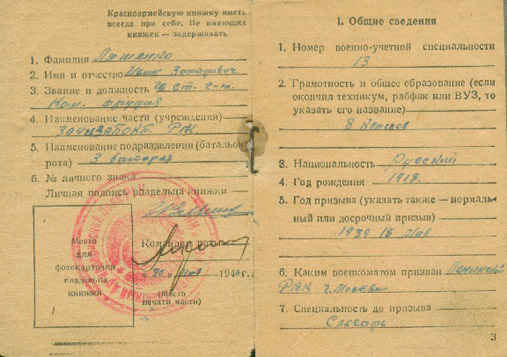 Красноармейскую книжку иметь
всегда при себе. Не имеющих
книжек — задерживать
1. Фамилия Ляшенко
2. Имя и отчество Иван Захарович
3. Звание и должность ст. с-т.
Ком. орудия
4. Наименование части (учреждения)
РГК
5. Наименование подразделения (батальон,
рота) 3 батарея
6. № личного знака
Личная подпись владельца книжки
Место
для
фотокарточки
владельца
книжки
Командир
30 1940 г.
(Место
печати части)
I. Общие сведения
1. Номер военно-учетной специальности
13
2. Грамотность и общее образование (если
окончил техникум, рабфак или ВУЗ, то
указать его название)
8 классов
3. Национальность Русский
4. Год рождения 1918
5. Год призыва (указать также — нормаль-
ный или досрочный призыв)
1939 18 мая
6. Каким военкоматом призван Ленинский
РВК г. Москва
7. Специальность до призыва
Слесарь
3